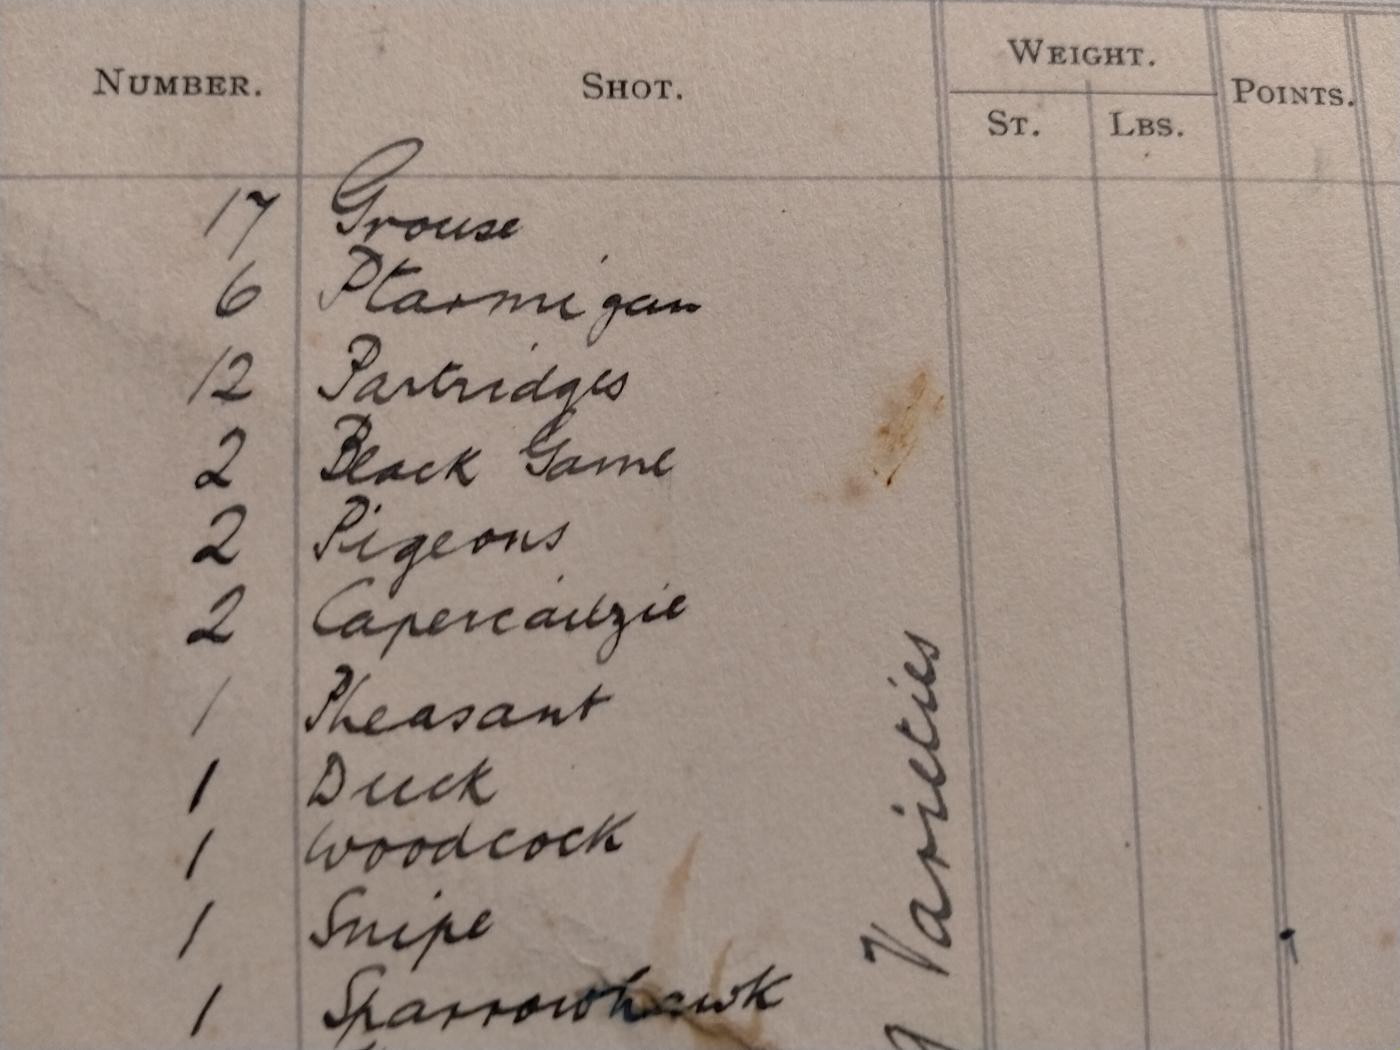 NUMBER. SHOT. WEIGHT. POINTS.
ST. LBS.
17 Grouse
6 Ptarmigan
12 Partridges
2 Black Game
2 Pigeons
2 Capercailzie
1 Pheasant
1 Duck
1 Woodcock
1 Snipe
1 Sparrowhawk
Varieties